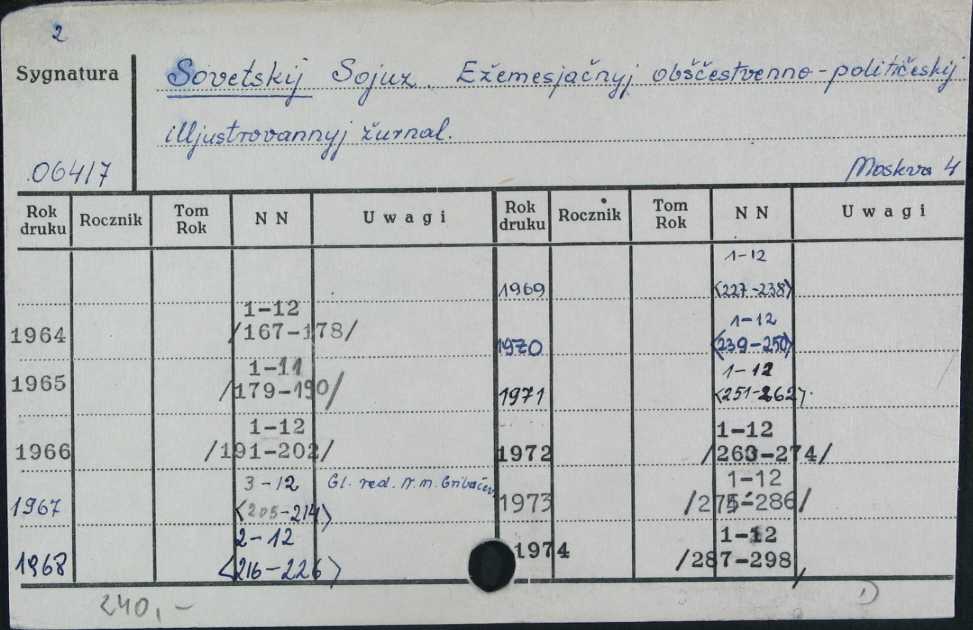 2
Sygnatura
Sovetskij Sojuz. Ežemesjačnyj obščestvenno-političeskij
illjustrovannyj žurnal.
06417
Moskva 4
Rok druku Rocznik Tom Rok N N Uwagi Rok druku Rocznik Tom Rok N N Uwagi
1969 1-12 <227-238>
1964 1-12 /167-178/
1970 1-12 <239-250>
1965 1-11 /179-190/
1971 1-12 <251-262>
1966 1-12 /191-202/
1972 1-12 /263-274/
1967 3-12 <205-214> Gl. red. N.M. Gribačev
1973 1-12 /275-286/
1968 2-12 <216-226>
1974 1-12 /287-298/
240,-